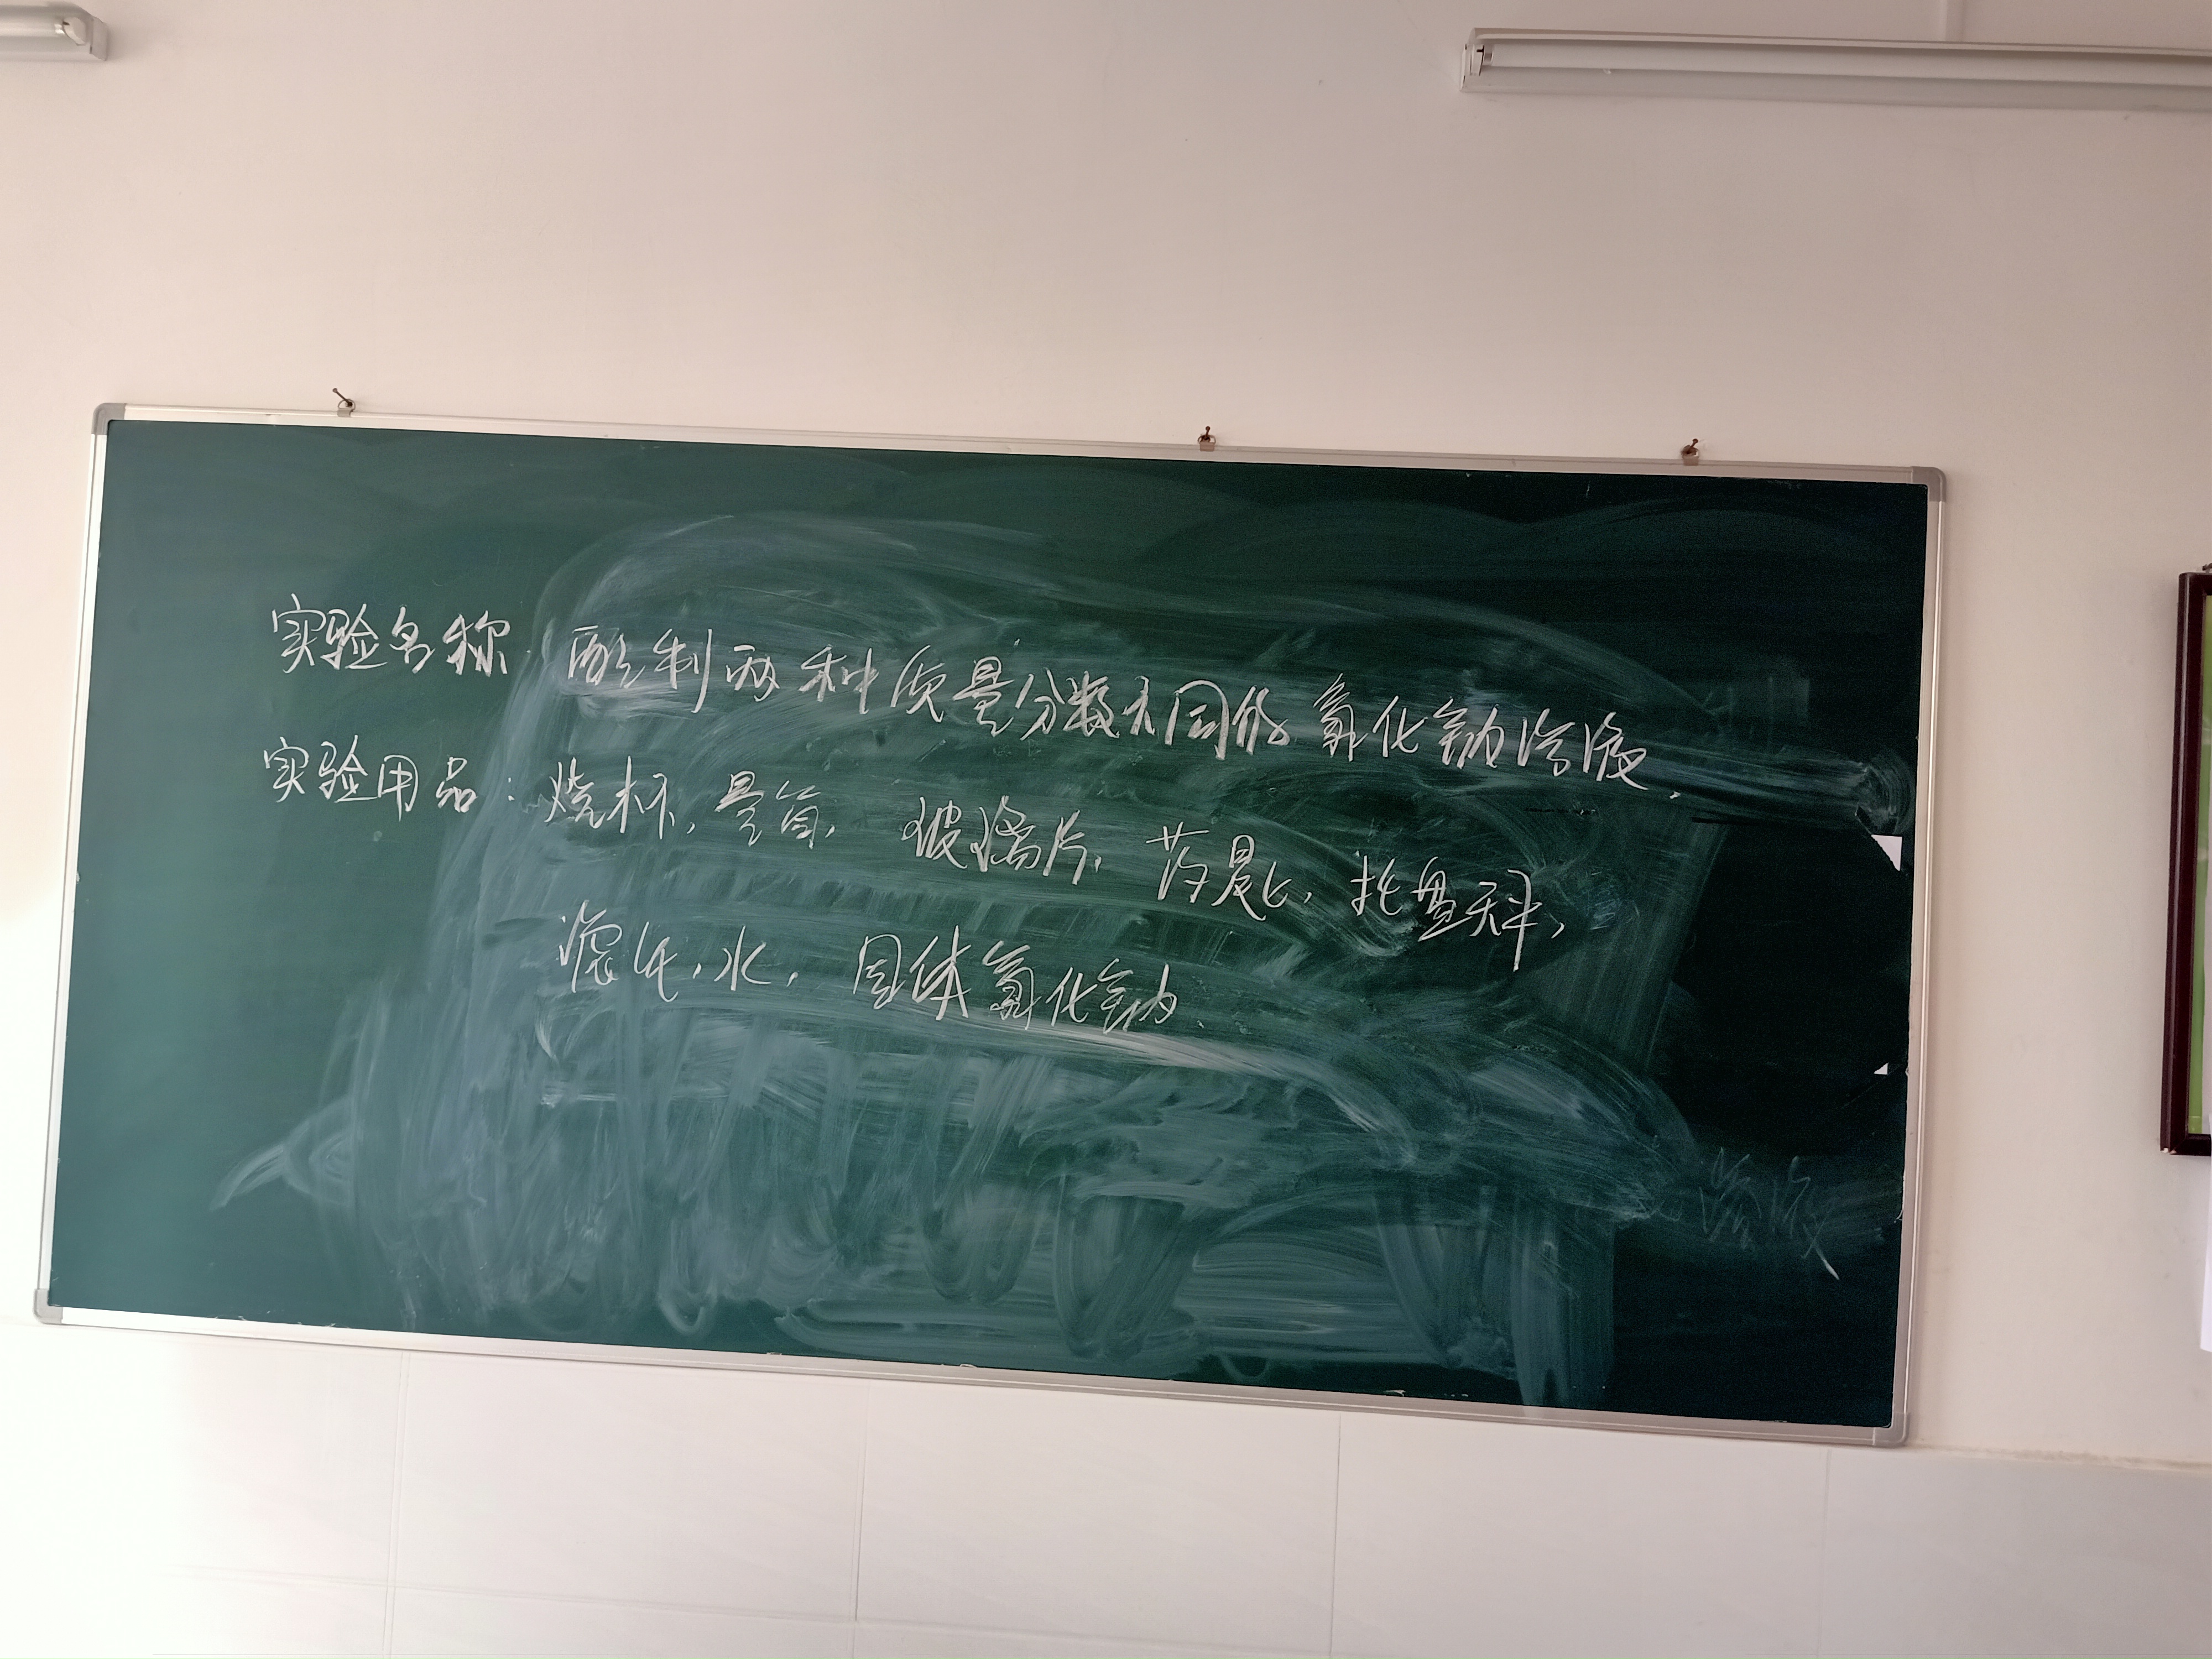 实验名称:配制两种质量分数不同的氯化钠溶液.
实验用品:烧杯,量筒,玻璃片,药匙,托盘天平,
滤纸,水,固体氯化钠.